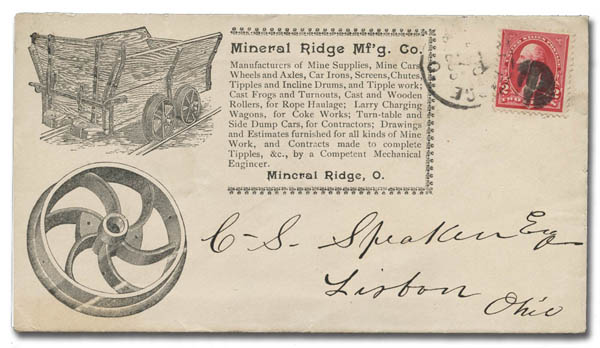 Mineral Ridge Mf'g. Co.
Manufacturers of Mine Supplies, Mine Cars
Wheels and Axles, Car Irons, Screens, Chutes,
Tipples and Incline Drums, and Tipple work;
Cast Frogs and Turnouts, Cast and Wooden
Rollers, for Rope Haulage; Larry Charging
Wagons, for Coke Works; Turn-table and
Side Dump Cars, for Contractors; Drawings
and Estimates furnished for all kinds of Mine
Work, and Contracts made to complete
Tipples, &c., by a Competent Mechanical
Engineer.
Mineral Ridge, O.
2 2
TWO
C. S. Speaker Esq
Lisbon
Ohio